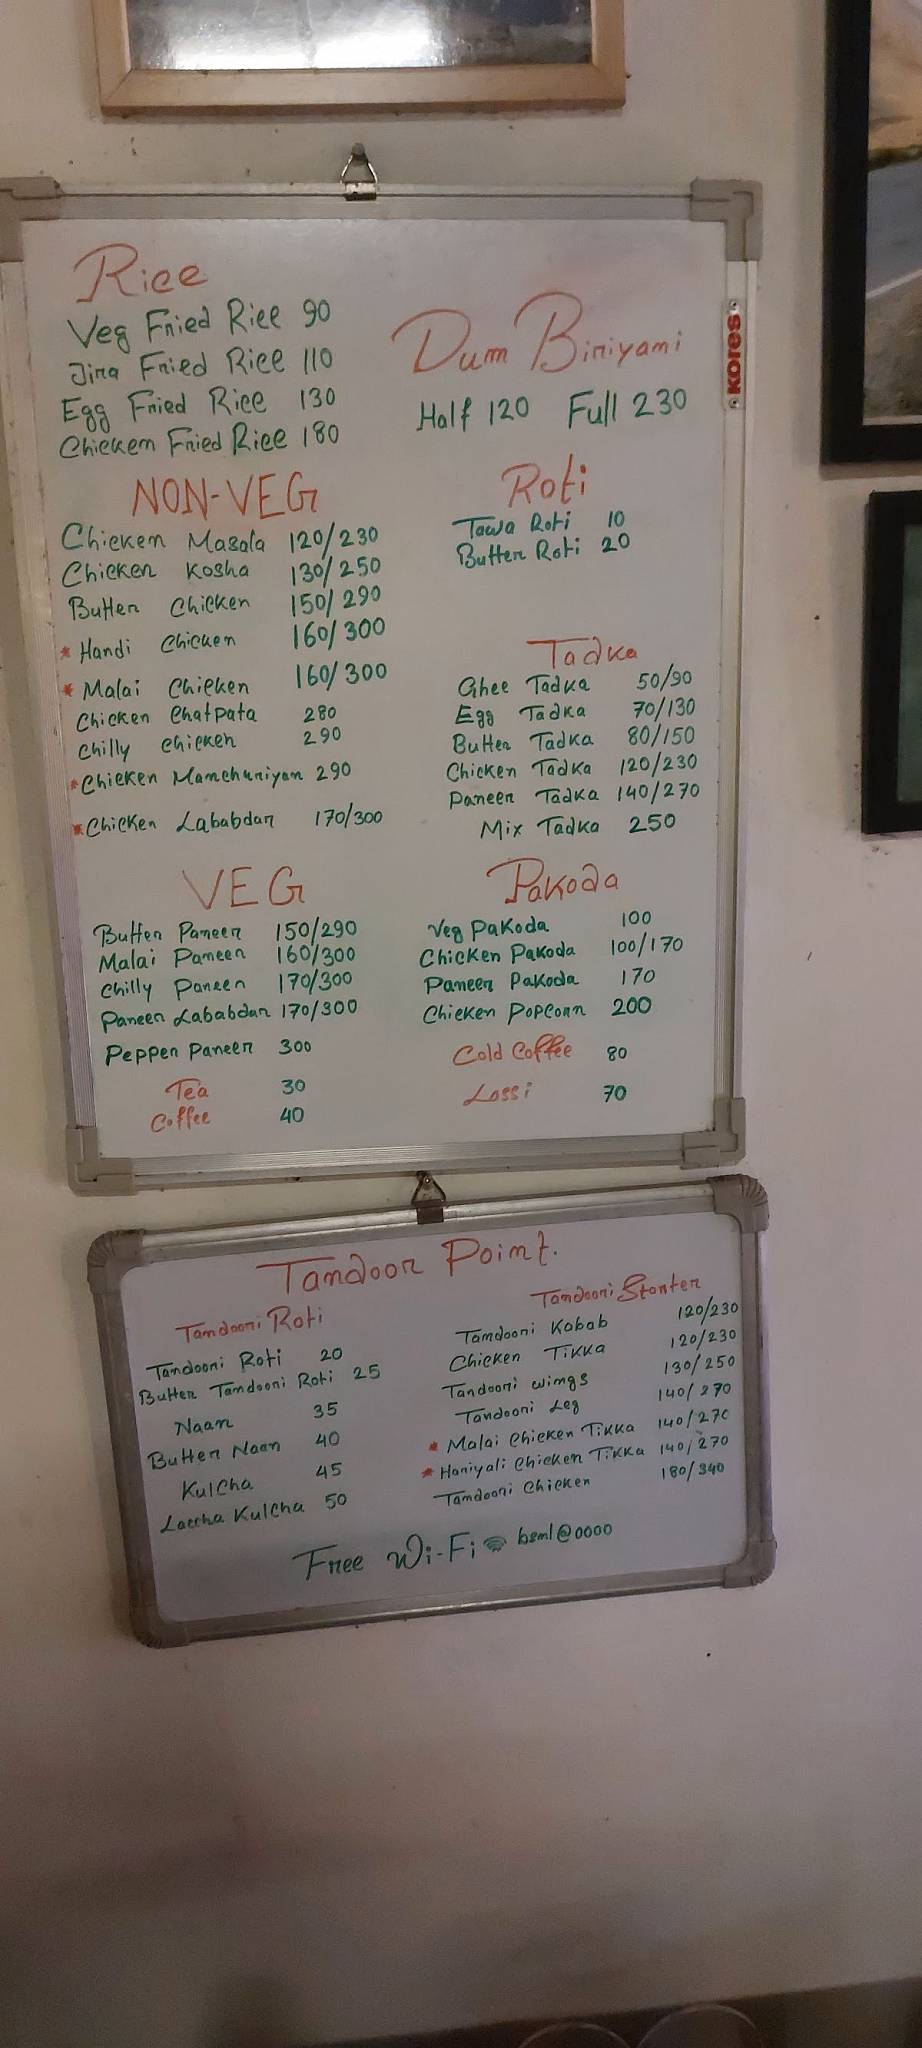 Rice
Veg Fried Rice 90
Jira Fried Rice 110
Egg Fried Rice 130
Chicken Fried Rice 180
Dum Biriyani
Half 120 Full 230
KORES
NON-VEG
Chicken Masala 120/230
Chicken Kosha 130/250
Butter Chicken 150/290
* Handi Chicken 160/300
* Malai Chicken 160/300
Chicken Chatpata 280
Chilly Chicken 290
* Chicken Manchuriyan 290
* Chicken Lababdar 170/300
Roti
Tawa Roti 10
Butter Roti 20
Tadka
Ghee Tadka 50/90
Egg Tadka 70/130
Butter Tadka 80/150
Chicken Tadka 120/230
Paneer Tadka 140/270
Mix Tadka 250
VEG
Butter Paneer 150/290
Malai Paneer 160/300
Chilly Paneer 170/300
Paneer Lababdar 170/300
Pepper Paneer 300
Tea 30
Coffee 40
Pakoda
Veg Pakoda 100
Chicken Pakoda 100/170
Paneer Pakoda 170
Chicken Popcorn 200
Cold Coffee 80
Lassi 70
Tandoor Point.
Tandoori Roti
Tandoori Roti 20
Butter Tandoori Roti 25
Naan 35
Butter Naan 40
Kulcha 45
Laccha Kulcha 50
Tandoori Starter
Tandoori Kabab 120/230
Chicken Tikka 120/230
Tandoori Wings 130/250
Tandoori Leg 140/270
* Malai Chicken Tikka 140/270
* Hariyali Chicken Tikka 140/270
Tandoori Chicken 180/340
Free Wi-Fi bsml@0000